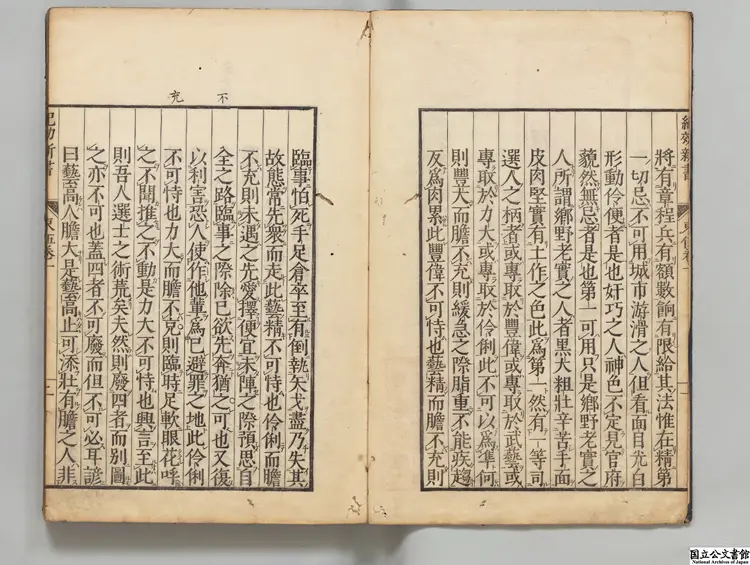 紀效新書
束伍卷一
將有章程兵有額數餉有限給其法惟在精第
一切忌不可用城市游滑之人但看面目光白
形動伶便者是也奸巧之人神色不定見官府
藐然無忌者是也第一可用只是鄉野老實之
人所謂鄉野老實之人者黑大粗壯辛苦手面
皮肉堅實有土作之色此爲第一然有一等司
選人之柄者或專取於豐偉或專取於武藝或
專取於力大或專取於伶俐此不可以爲準何
則豐大而膽不充則緩急之際脂重不能疾趨
反爲肉累此豐偉不可恃也藝精而膽不充則
不
充
臨事怕死手足倉卒至有倒執矢戈盡乃失其
故態常先衆而走此藝精不可恃也伶俐而膽
不充則未遇之先愛擇便宜未陣之際預思自
全之路臨事之際除已欲先奔猶之可也又復
以利害恐人使作他輩爲已避罪之地此伶俐
不可恃也力大而膽不兄則臨時足軟眼花呼
之不聞推之不動是力大不可恃也興言至此
則吾人選士之術荒矣夫然則廢四者而別圖
之亦不可也蓋四者不可廢而但不可必耳諺
曰藝高人膽大是藝高止可添壯有膽之人非
紀効新書
束伍卷一
国立公文書館
National Archives of Japan